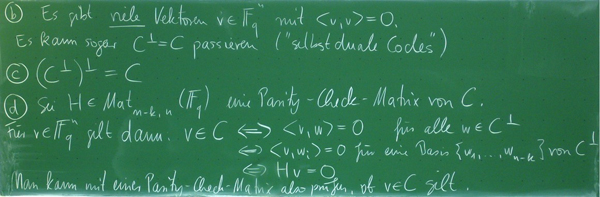 (b) Es gibt viele Vektoren v∈𝔽_q^n mit <v,v>=0.
Es kann sogar C^⊥=C passieren ("selbstduale Codes")
(c) (C^⊥)^⊥ = C
(d) Sei H∈Mat_{n-k,n}(𝔽_q) eine Parity-Check-Matrix von C.
Für v∈𝔽_q^n gilt dann: v∈C ⇔ <v,w>=0 für alle w∈C^⊥
⇔ <v,w_i>=0 für eine Basis {w_1,...,w_{n-k}} von C^⊥
⇔ Hv=0
Man kann mit einer Parity-Check-Matrix also prüfen, ob v∈C gilt.